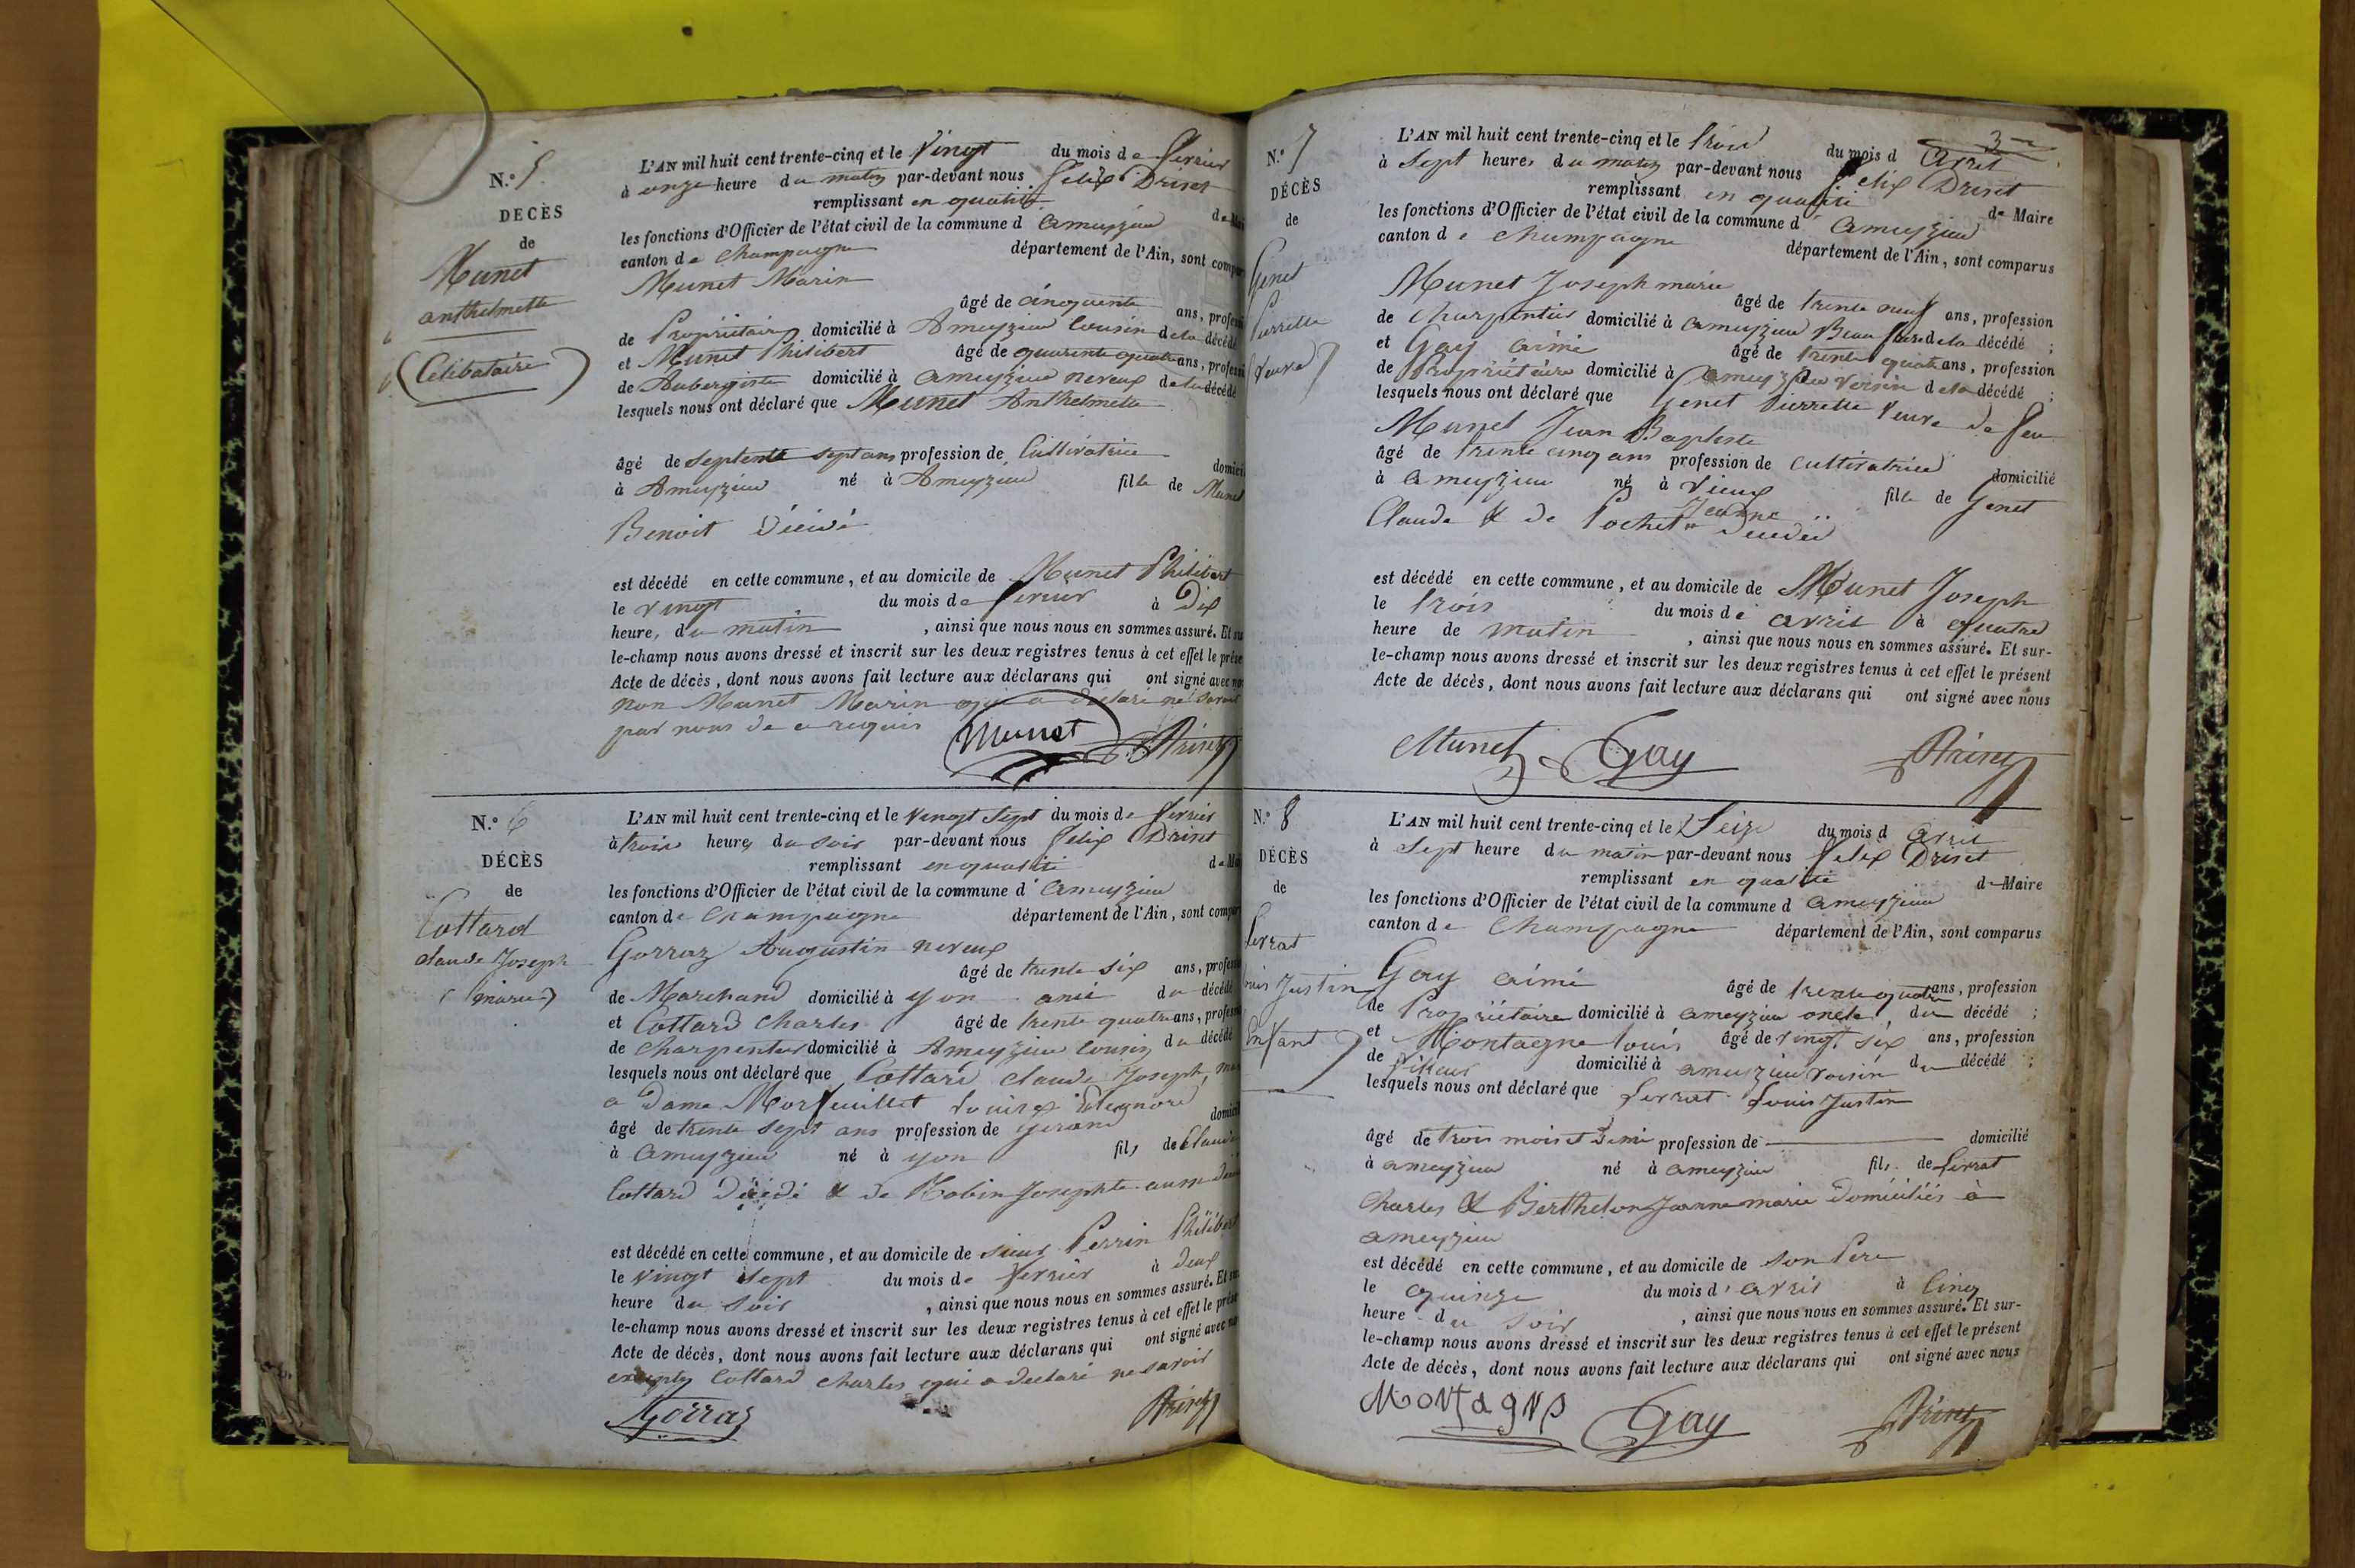 N.° 5
DÉCÈS
de
Munet
anthelmette
(Célibataire)
L'AN mil huit cent trente-cinq et le Vingt du mois de fevrier
à onze heure du matin par-devant nous felix Drizet
remplissant en qualité de Mai
les fonctions d'Officier de l'état civil de la commune d ameyzieu
canton de champagne département de l'Ain, sont compar
Munet Marin
âgé de cinquante ans, profess
de Propriétaire domicilié à Ameyzieu cousin de la décédé
et Munet Philibert âgé de quarente quatre ans, profess
de Aubergiste domicilié à ameyzieu neveux de la décédé
lesquels nous ont déclaré que Munet Anthelmette
âgé de septente sept ans profession de Cultivatrice domicil
à Ameyzieu né à Ameyzieu fille de Munet
Benoit décédé
est décédé en cette commune, et au domicile de Munet Philibert
le vingt du mois de fevrier à Dix
heure, du matin , ainsi que nous nous en sommes assuré. Et su
le-champ nous avons dressé et inscrit sur les deux registres tenus à cet effet le prése
Acte de décès, dont nous avons fait lecture aux déclarans qui ont signé avec no
non Munet Marin qui a déclaré ne savoir
par nous de a requis
Munet Drizet
N.° 6
DÉCÈS
de
Cottard
claude Joseph
(marié)
L'AN mil huit cent trente-cinq et le vingt sept du mois de fevrier
à trois heures du soir par-devant nous felix Drizet
remplissant en qualité de Mai
les fonctions d'Officier de l'état civil de la commune d' ameyzieu
canton de champagne département de l'Ain, sont compar
Gorraz Augustin neveux
âgé de trente six ans, profess
de Marchand domicilié à yon amié du décédé
et Cottard Charles âgé de trente quatre ans, profess
de charpentier domicilié à Ameyzieu cousin du décédé
lesquels nous ont déclaré que Cottard claude Joseph, mar
a Dame Morfuillet Louise Eleynore
âgé de trente sept ans profession de domicil
à ameyzieu né à yon fils de Claude
Cottard décédé & de Robin Josephte aussi
est décédé en cette commune, et au domicile de sieur Perrin Philibert
le vingt sept du mois de fevrier à deux
heure du soir , ainsi que nous nous en sommes assuré. Et su
le-champ nous avons dressé et inscrit sur les deux registres tenus à cet effet le prése
Acte de décès, dont nous avons fait lecture aux déclarans qui ont signé avec no
excepté Cottard charles qui a declaré ne savoir
Gorraz Drizet
3
N.° 7
DÉCÈS
de
Genet
Pierrette
Veuve
L'AN mil huit cent trente-cinq et le trois du mois d avril
à Sept heures du matin par-devant nous felix Drizet
remplissant en qualité de Maire
les fonctions d'Officier de l'état civil de la commune d ameyzieu
canton de champagne département de l'Ain, sont comparus
Munet Joseph marie
âgé de trente neuf ans, profession
de charpentier domicilié à ameyzieu Beau frere de la décédé ;
et Gay aimé âgé de trente quatre ans, profession
de Propriétaire domicilié à ameyzieu voisin de la décédé ;
lesquels nous ont déclaré que Genet Pierrette Veuve de feu
Munet Jean Baptiste
âgé de trente cinq ans profession de cultivatrice domicilié
à ameyzieu né à vieux fille de Genet
Claude & de Pochet Jeanne décédé
est décédé en cette commune, et au domicile de Munet Joseph
le trois du mois d' avril à quatre
heure de matin , ainsi que nous nous en sommes assuré. Et sur-
le-champ nous avons dressé et inscrit sur les deux registres tenus à cet effet le présent
Acte de décès, dont nous avons fait lecture aux déclarans qui ont signé avec nous
Munet Gay Drizet
N.° 8
DÉCÈS
de
ferrat
Louis Justin
Enfant
L'AN mil huit cent trente-cinq et le Seize du mois d avril
à sept heure du matin par-devant nous felix Drizet
remplissant en qualité de Maire
les fonctions d'Officier de l'état civil de la commune d ameyzieu
canton de Champagne département de l'Ain, sont comparus
Gay aimé âgé de trente quatre ans, profession
de Propriétaire domicilié à ameyzieu oncle du décédé ;
et Montagne Louis âgé de vingt six ans, profession
de domicilié à ameyzieu voisin du décédé ;
lesquels nous ont déclaré que ferrat Louis Justin
âgé de trois mois et demi profession de domicilié
à ameyzieu né à ameyzieu fils de ferrat
Charles & Berthelon Jeanne marie domiciliés à
ameyzieu
est décédé en cette commune, et au domicile de son Pere
le quinze du mois d' avril à Cinq
heure du soir , ainsi que nous nous en sommes assuré. Et sur-
le-champ nous avons dressé et inscrit sur les deux registres tenus à cet effet le présent
Acte de décès, dont nous avons fait lecture aux déclarans qui ont signé avec nous
Montagne Gay Drizet